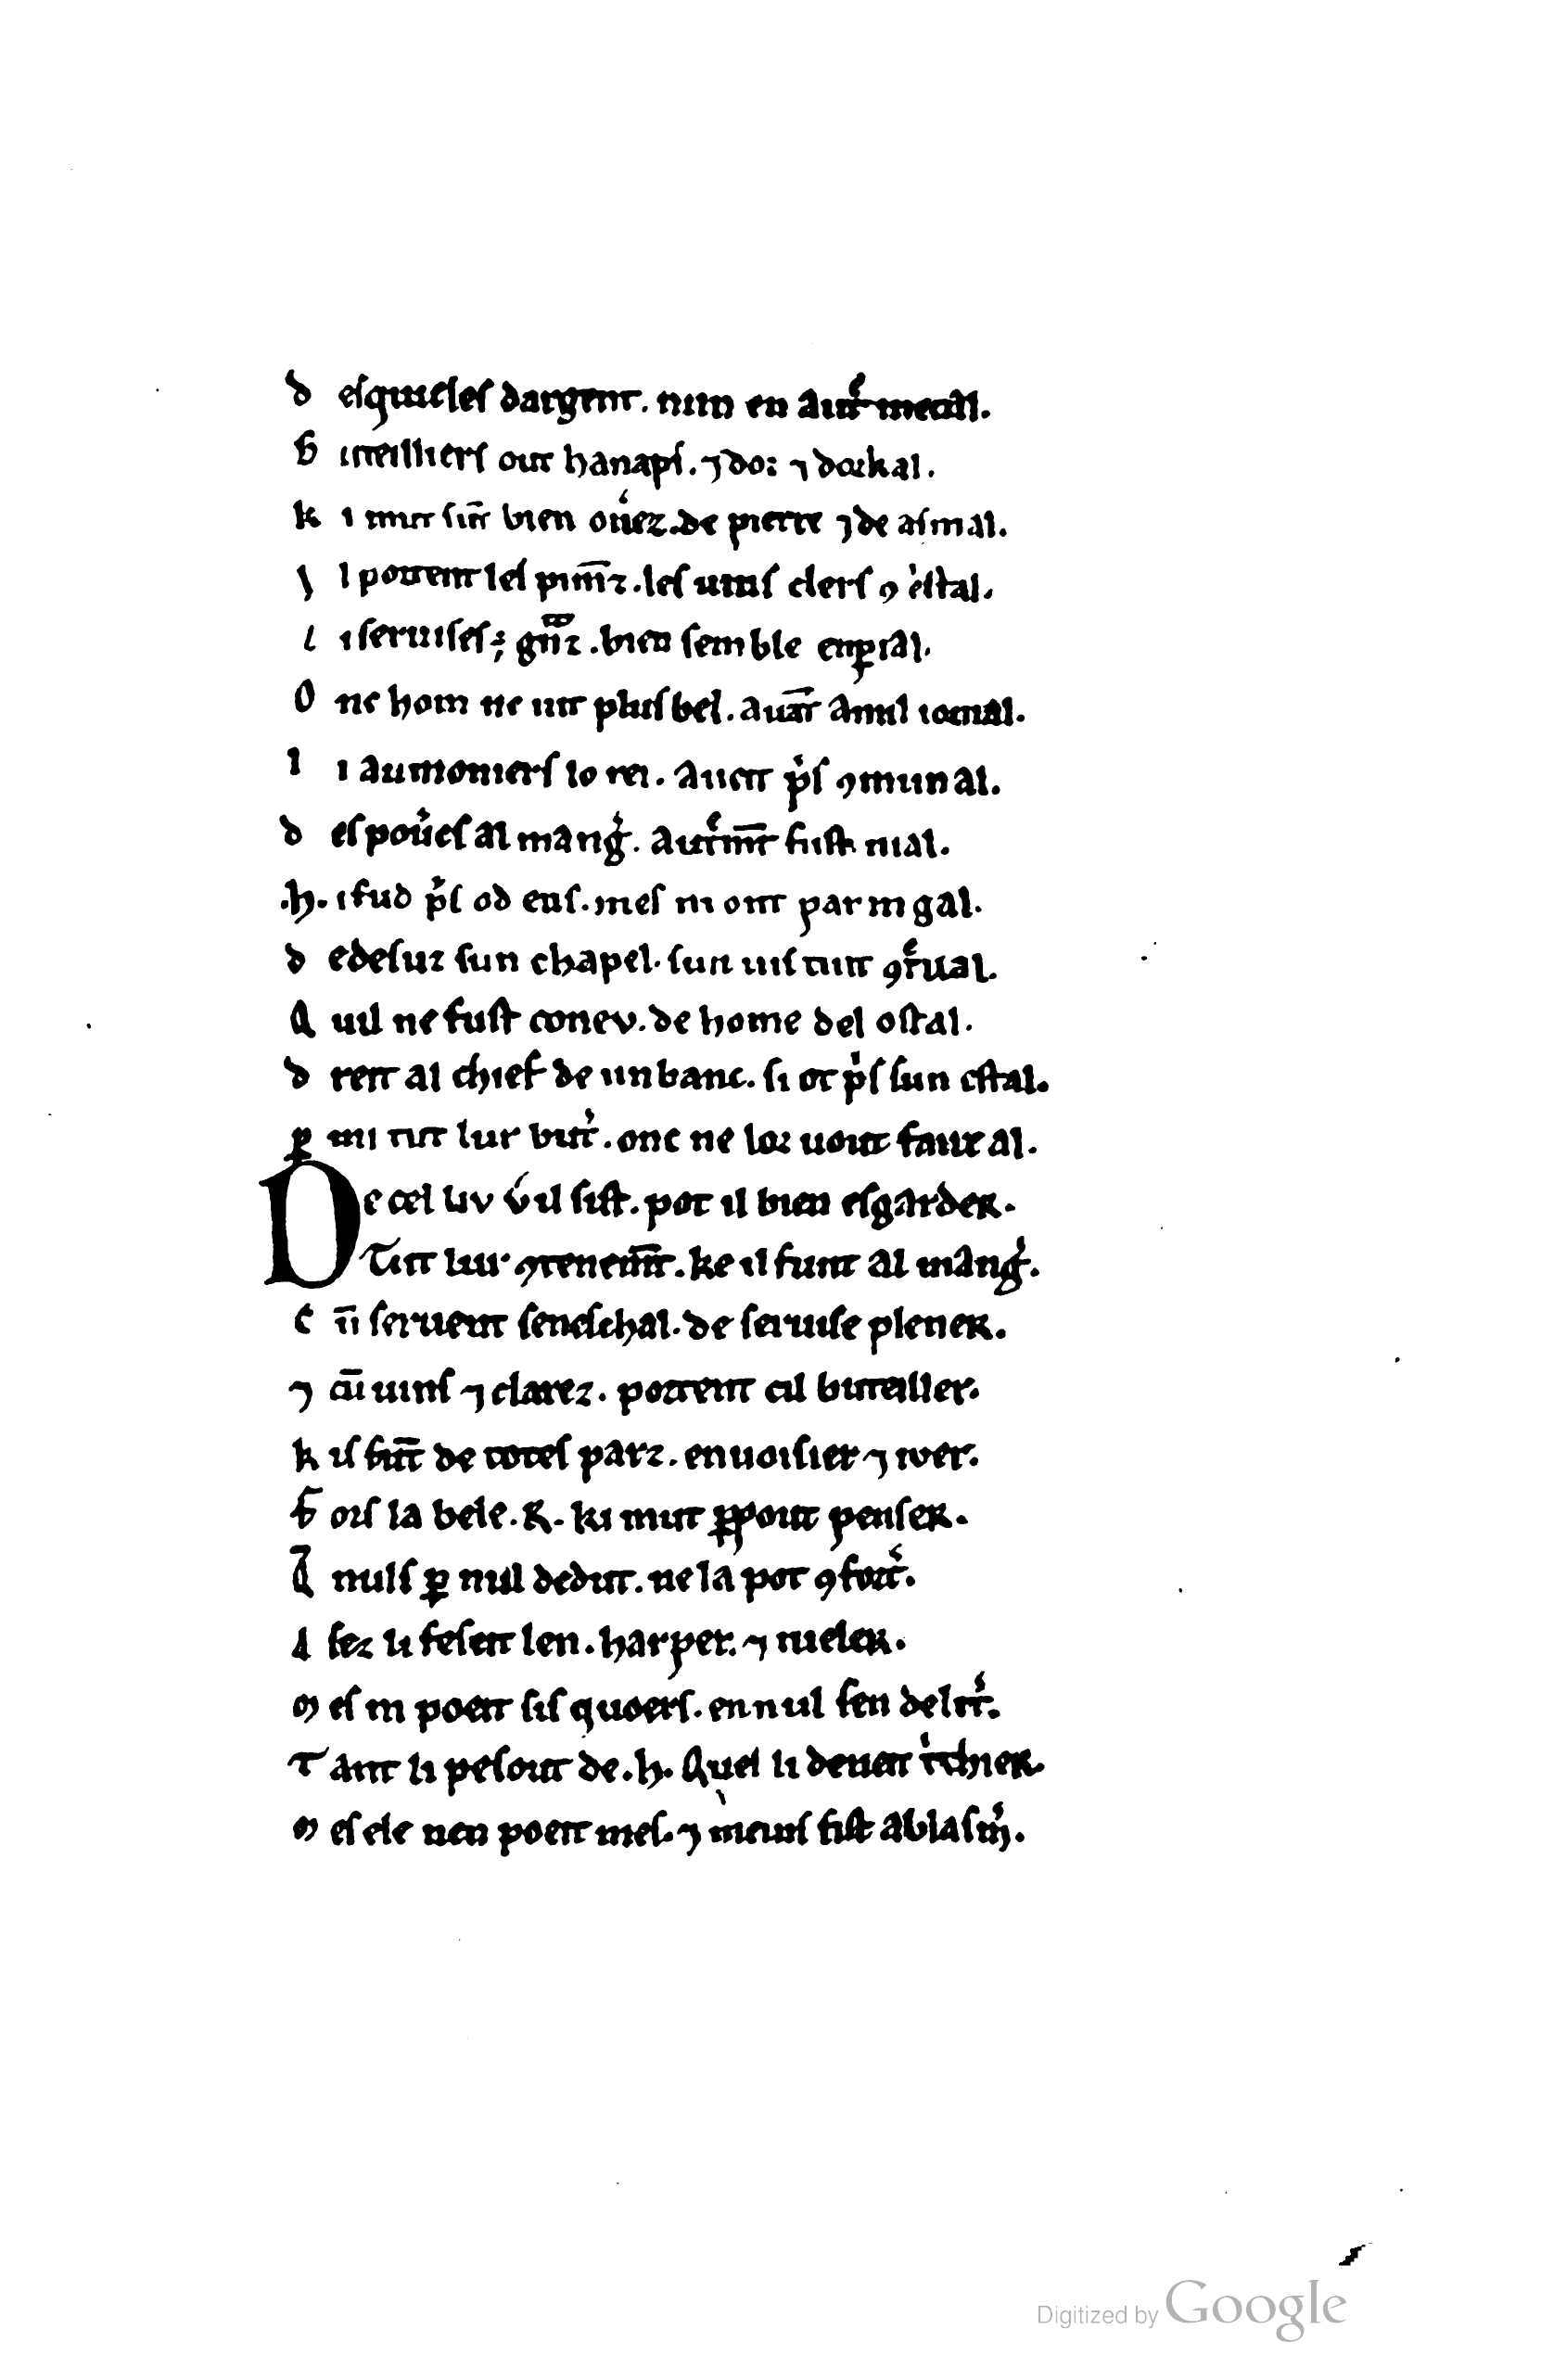 d eſquieles dargent. nun en aut͛ metal.
B uteilliers out hanapſ. ⁊ do: ⁊ doꝛkal.
k i mut ſūt bien oͬnez. de pierre ⁊ de aſmal.
I l portent leſ pim̄z. leſ uins clerſ ꝯ eͥſtal.
l i ſeruiſeſ; gn̄z. bien ſemble enꝑial.
O ne hom ne uit pluſ bel. auāt anuil iornal.
l i aumonierſ lo rei. auett pͥſ ꝯmunal.
d eſ pouͦeſ al mangͥ. aut͛mēt fuſt mal.
.h. i fud pͥſ od euſ. meſ ni ont par in gal.
d edeſuz ſun chapel. ſun uiſ tint ꝯt͛ual.
Q uil ne fuſt coneu. de home del oſtal.
d reit al chief de un banc. ſi ot pͥſ ſun eſtal.
ꝑ mi tut lur butͥ. onc ne loꝛ uout faire al.
De cel liu v́ il ſiſt. pot il bien eſgardeR.
Tut lur ꝯtenem̄t. ke il funt al mangͥ.
C ū ſeruent ſeneſchal. de ſeruiſe pleneR.
⁊ cū uinſ ⁊ clarez. portent cil buteiller.
k iſ fūt de toteſ parz. enuoiſier ⁊ ioer.
F orſ la bele. R. ki mut ꝑ pout penſeR.
Q̄ nulſ ꝑ nul dedut. ne la pot ꝯfortͥ.
A ſez li feſeit len. harper. ⁊ uieleR.
ꝯ eſ ni poeit ſiſ quoerſ. en nul ſen delitͥ.
T ant li peſout de .h. Quel li deueit tͥchieR.
ꝯ eſ ele nen poeit meſ. ⁊ meinſ fiſt a blaſm̉.
Digitized by Google